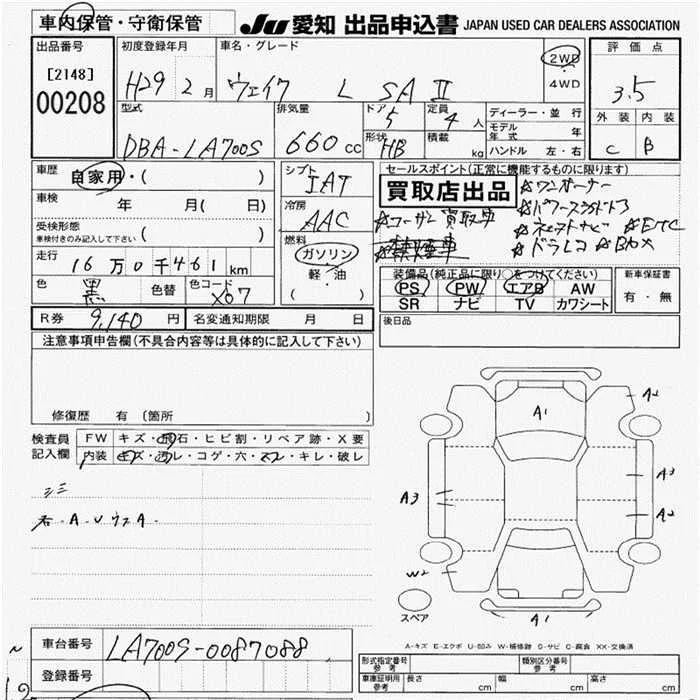 車内保管・守衛保管
JU 愛知 出品申込書 JAPAN USED CAR DEALERS ASSOCIATION
出品番号
[2148]
00208
初度登録年月
H29 2月
車名・グレード
ウェイク L SA II
2WD
・
4WD
評価点
3.5
外装 内装
C B
型式
DBA-LA700S
排気量
660 cc
ドア
5
形状
HB
定員
4人
積載
kg
ディーラー・並行
モデル年式 年
ハンドル 左・右
車歴
自家用・( )
車検
年 月( 日)
受検形態
車検付きのみ記入して下さい ( )
走行
16万0千461km
色
黒
色替
色コード
X07
シフト
IAT
冷房
AAC
燃料
ガソリン
軽・油
( )
セールスポイント(正常に機能するものに限ります)
買取店出品
☆ワンオーナー
☆ユーザー買取車
☆禁煙車
☆パワースライドドア
☆ETC
☆ドラレコ
装備品(純正品に限り○をつけてください)
PS PW エアB AW
SR ナビ TV カワシート
新車保証書
有・無
R券 9,140円
名変通知期限 月 日
後日品
注意事項申告欄(不具合内容等は具体的に記入して下さい)
修復歴 有 (箇所 )
検査員
記入欄
FW キズ・飛石・ヒビ割・リペア跡・X要
内装 キズ・汚レ・コゲ・穴・スレ・キレ・破レ
シミ
A1
A2
A3
A3
A2
W2
A1
スペア
A-キズ E-エクボ U-凹み W-補修跡 S-サビ C-腐食 XX-交換済
車台番号 LA700S-0087088
登録番号
型式指定番号
参考
類別区分番号
参考
車庫証明用
参考
長さ cm 幅 cm 高さ cm